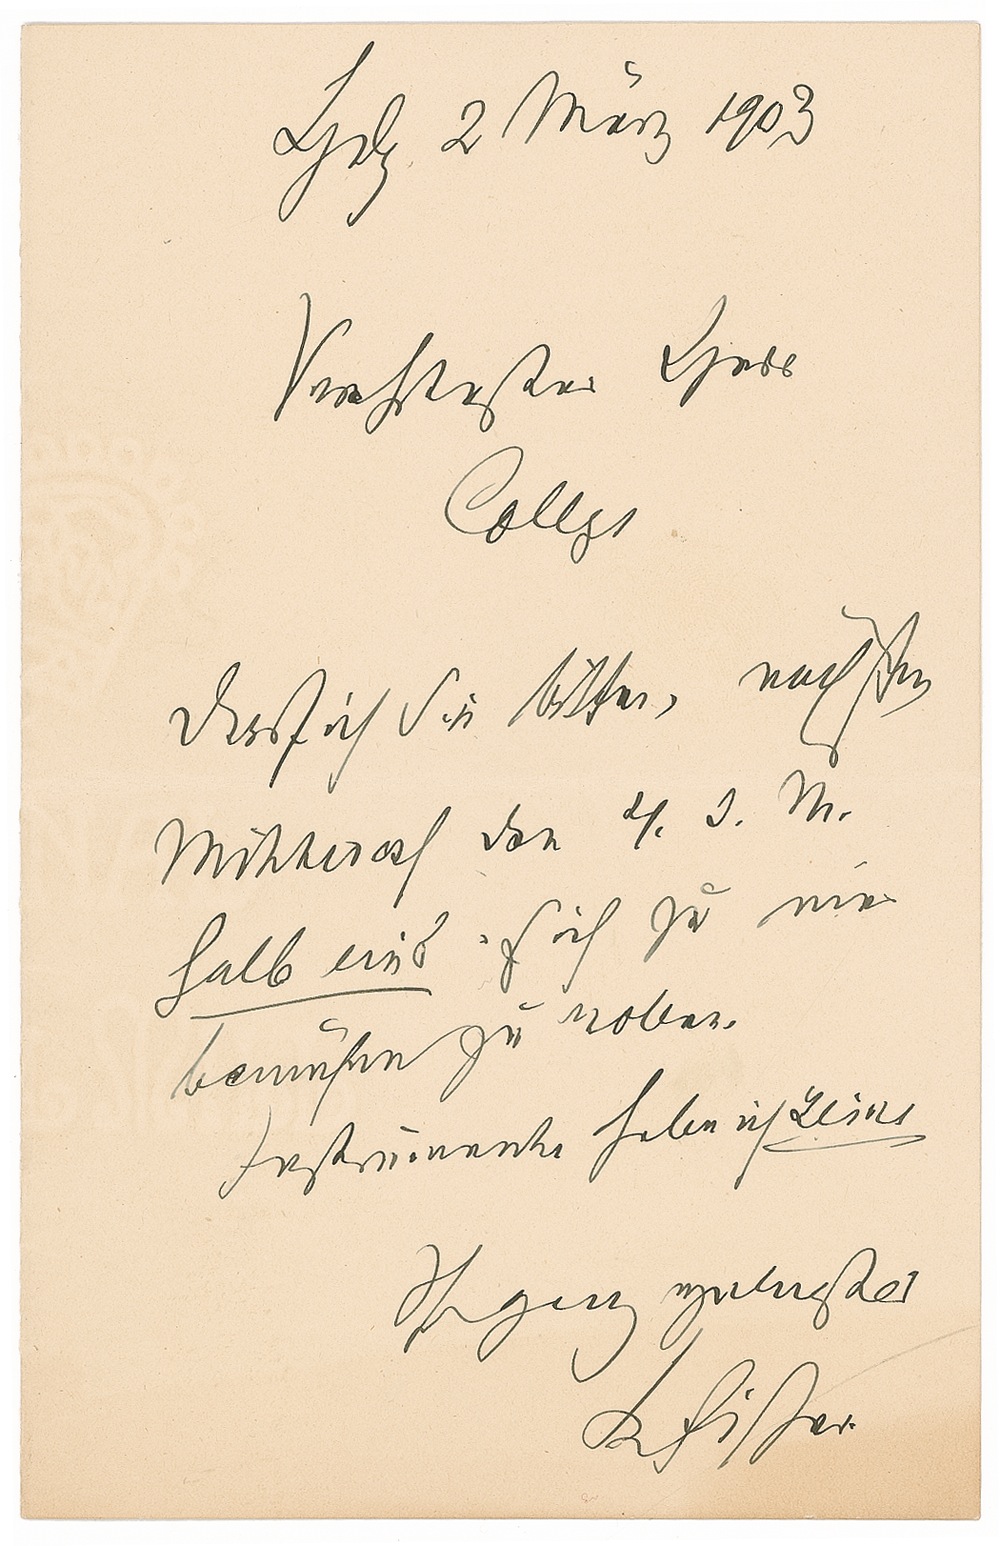 Hdlg. 2 März 1903
Verehrtester Herr
College
Darf ich Sie bitten, nächsten
Mittwoch den 4. d. M.
halb eins sich zu mir
bemühen zu wollen.
Instrumente habe ich keine
Ihr ganz ergebenster
K Fischer